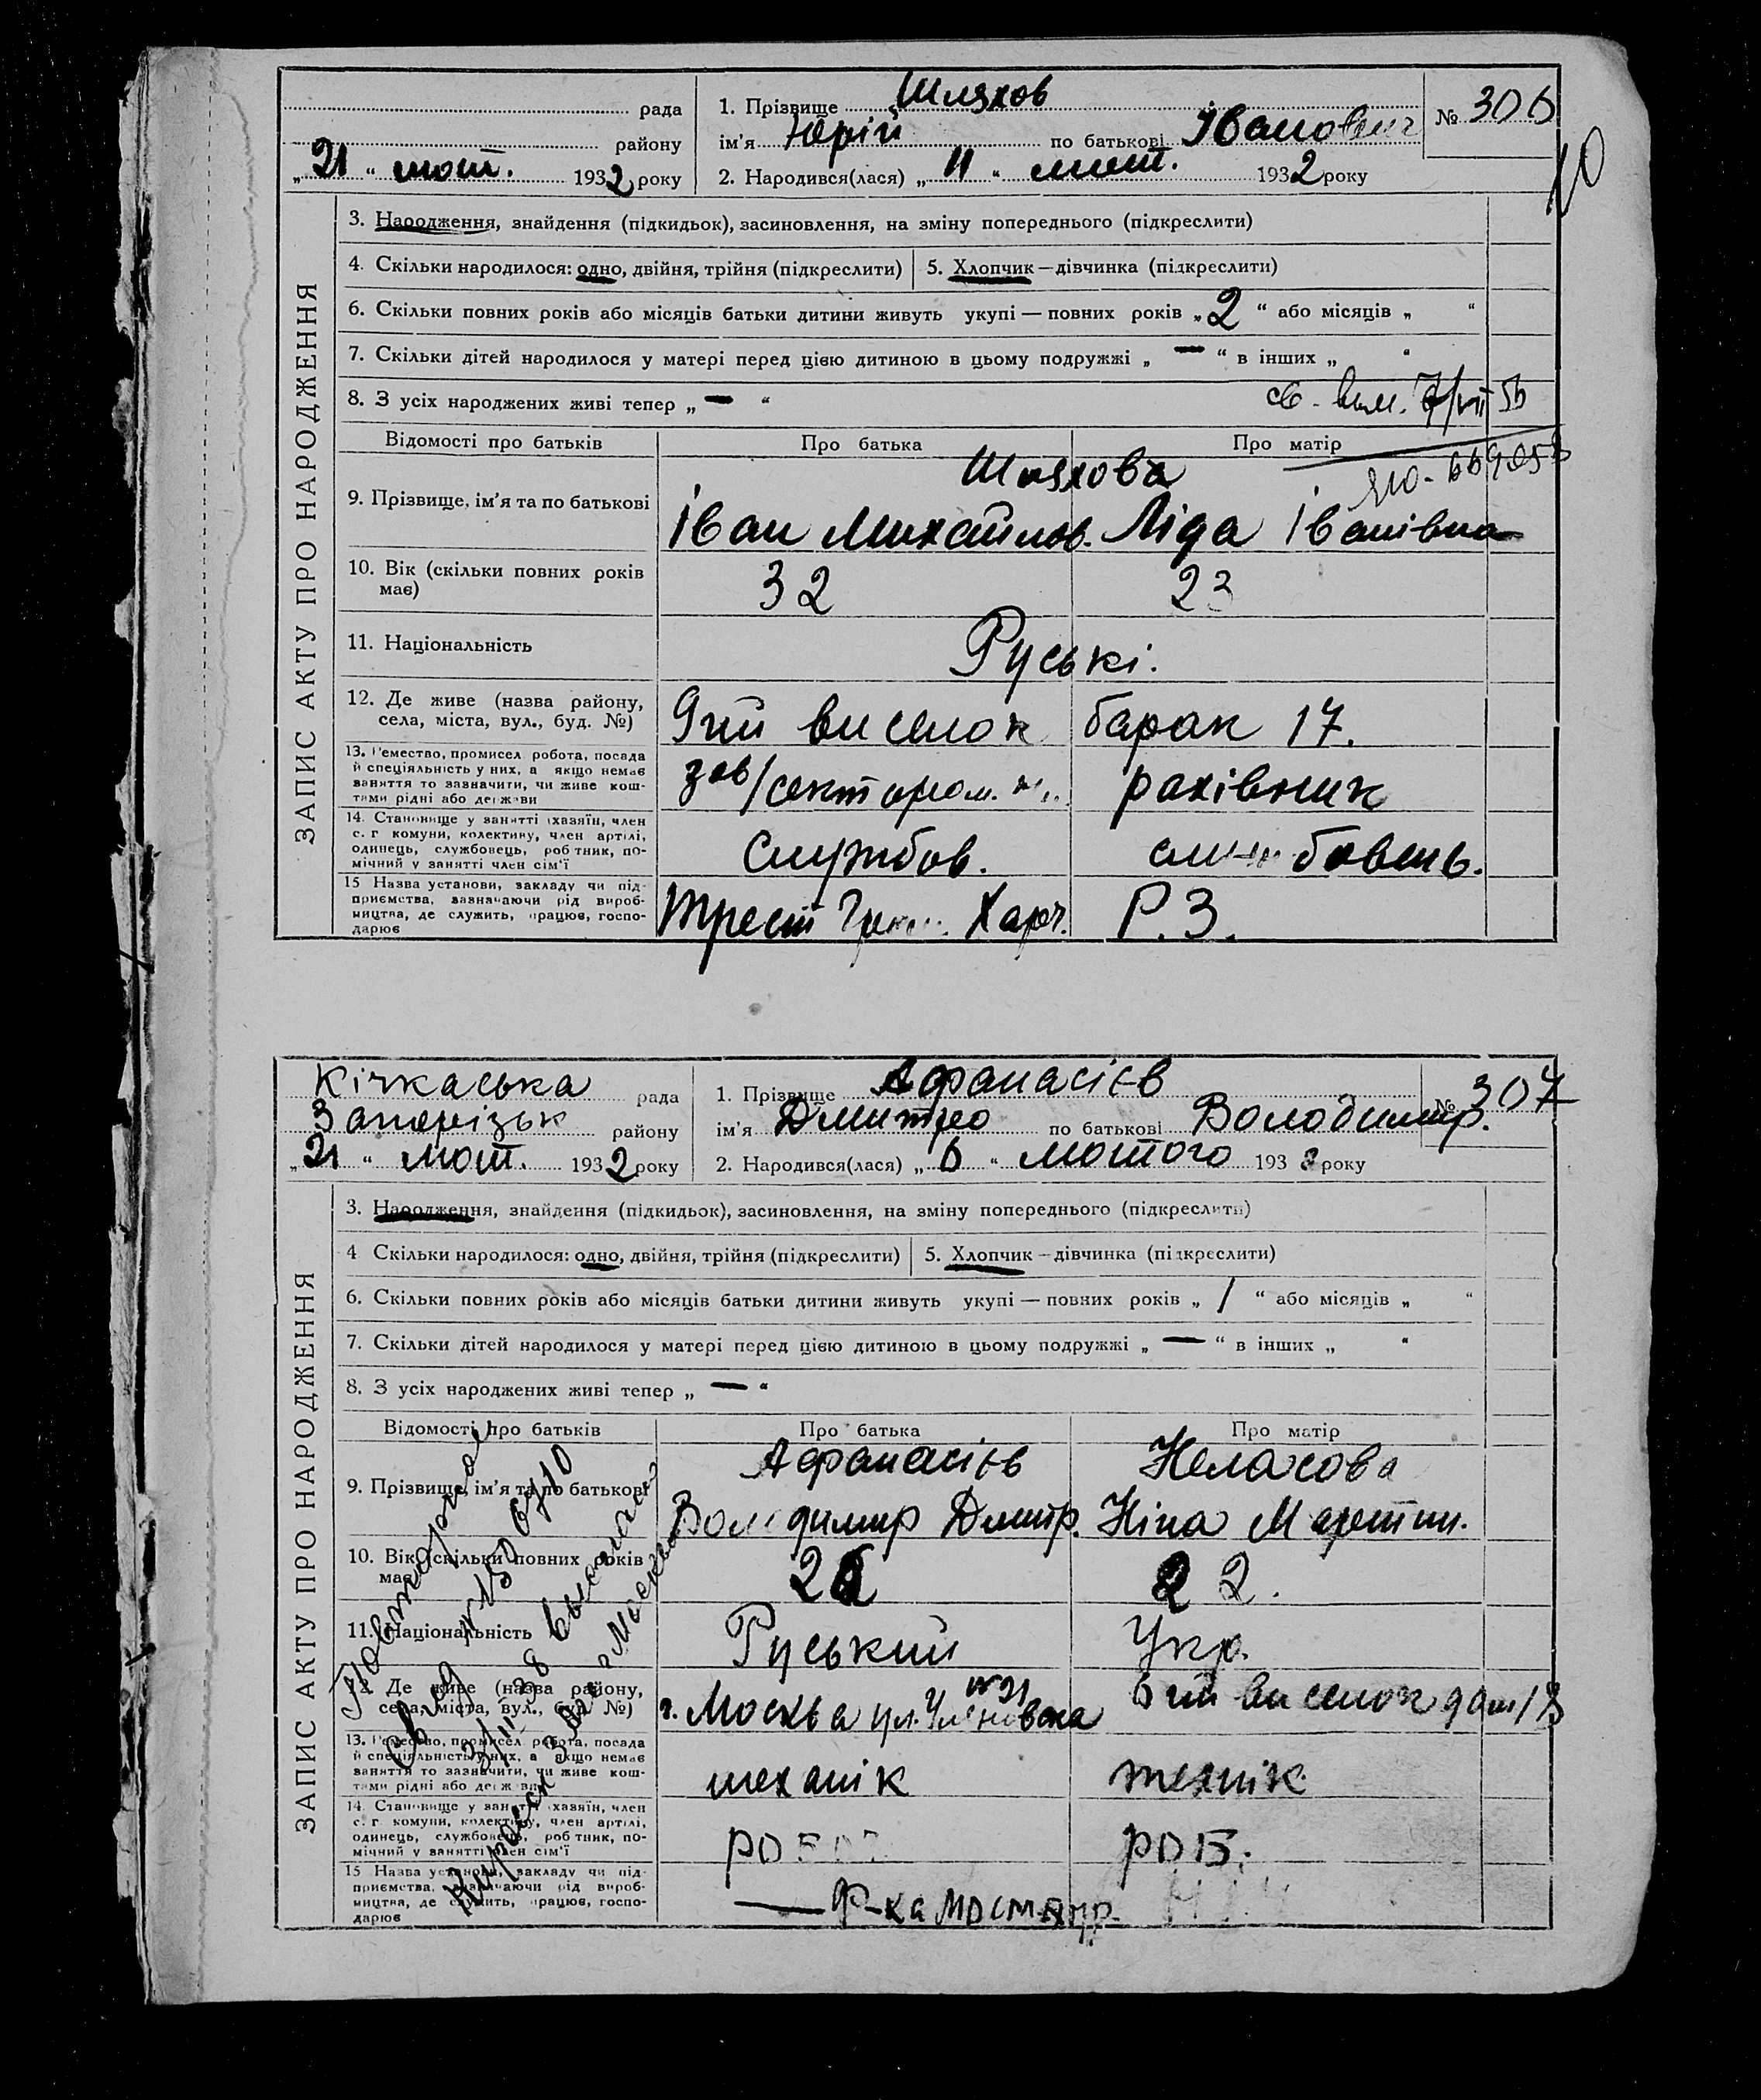 рада
району
„ 21 “ лют. 1932 року
1. Прізвище Шляхов
ім’я Юрій по батькові Іванович
2. Народився(лася) „ 11 “ лют. 1932 року
№ 306
10
ЗАПИС АКТУ ПРО НАРОДЖЕННЯ
3. Народження, знайдення (підкидьок), засиновлення, на зміну попереднього (підкреслити)
4. Скільки народилося: одно, двійня, трійня (підкреслити) 5. Хлопчик — дівчинка (підкреслити)
6. Скільки повних років або місяців батьки дитини живуть укупі — повних років „ 2 “ або місяців „ “
7. Скільки дітей народилося у матері перед цією дитиною в цьому подружжі „ — “ в інших „ “
8. З усіх народжених живі тепер „ — “
св. вид. 7/VII 56
Відомості про батьків Про батька Про матір
Шляхова
9. Прізвище, ім’я та по батькові Іван Михайлов. Ліда Іванівна
10. Вік (скільки повних років має) 32 23
11. Національність Руські.
12. Де живе (назва району, села, міста, вул., буд. №) 9тий виселок барак 17.
13. Ремество, промисел робота, посада й спеціяльність у них, а якщо немає заняття то зазначити, чи живе коштами рідні або держави зав/сектором. рахівник
14. Становище у занятті (хазяїн, член с.г комуни, колективу, член артілі, одинець, службовець, робітник, помічний у занятті член сім’ї Службов. службовець.
15 Назва установи, закладу чи підприємства, зазначаючи рід виробництва, де служить, працює, господарює Трест Харч. Р.З.
Кічкаська рада
Запоріжськ району
„ 21 “ лют. 1932 року
1. Прізвище Афанасієв
ім’я Дмитро по батькові Володимир.
2. Народився(лася) „ 6 “ лютого 1932 року
№ 307
ЗАПИС АКТУ ПРО НАРОДЖЕННЯ
3. Народження, знайдення (підкидьок), засиновлення, на зміну попереднього (підкреслити)
4 Скільки народилося: одно, двійня, трійня (підкреслити) 5. Хлопчик — дівчинка (підкреслити)
6. Скільки повних років або місяців батьки дитини живуть укупі — повних років „ 1 “ або місяців „ “
7. Скільки дітей народилося у матері перед цією дитиною в цьому подружжі „ — “ в інших „ “
8. З усіх народжених живі тепер „ — “
Відомості про батьків Про батька Про матір
Афанасієв
9. Прізвище, ім’я та по батькові Володимир Дмитр. Ніна Мартин.
10. Вік (скільки повних років має) 22.
11. Національність Руський Укр.
12. Де живе (назва району, села, міста, вул., буд. №) г. Москва ул. Ульяновска № 21 6тий виселок дом 13
13. Ремество, промисел робота, посада й спеціяльність у них, а якщо немає заняття то зазначити, чи живе коштами рідні або держави механік технік
14. Становище у занятті (хазяїн, член с.г комуни, колективу, член артілі, одинець, службовець, робітник, помічний у занятті член сім’ї роб роб.
15 Назва установи, закладу чи підприємства, зазначаючи рід виробництва, де служить, працює, господарює — Ф-ка
Повторная
Свид
выслано
г Москва